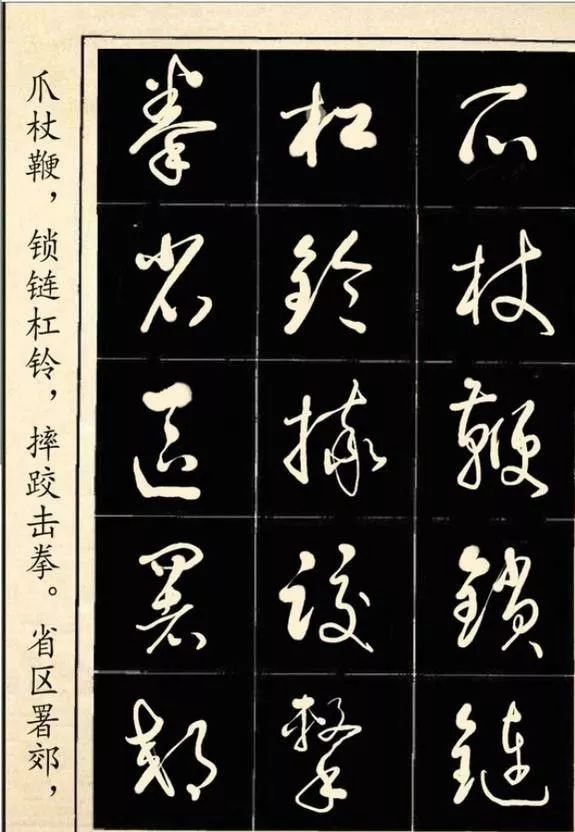 爪杖鞭鎖鏈
杠鈴摔跤擊
拳省區署郊
爪杖鞭，锁链杠铃，摔跤击拳。省区署郊，